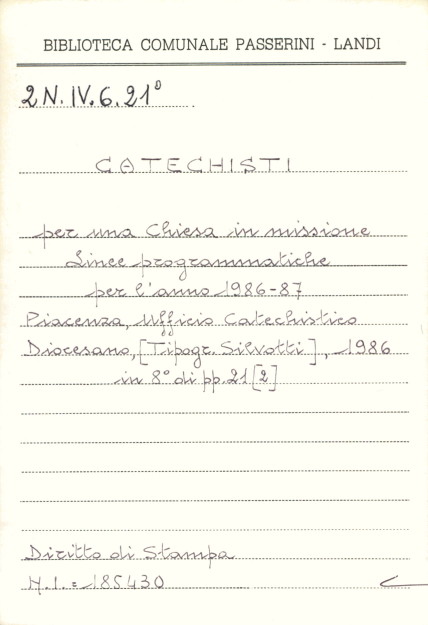 BIBLIOTECA COMUNALE PASSERINI - LANDI
2N.IV.6.21°
CATECHISTI
per una Chiesa in missione
Linee programmatiche
per l'anno 1986-87
Piacenza, Ufficio Catechistico
Diocesano, [Tipogr. Silvotti], 1986
in 8° di pp. 21 [2]
Diritto di Stampa
N.I. = 185430